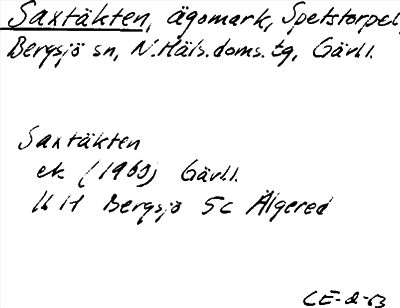 Saxtäkten, ägomark, Spetstorpet,
Bergsjö sn, N. Häls. doms. tg, Gävl.l.
Saxtäkten
ek (1963) Gävl.l.
16 H Bergsjö 5c Älgered
CE-2-63